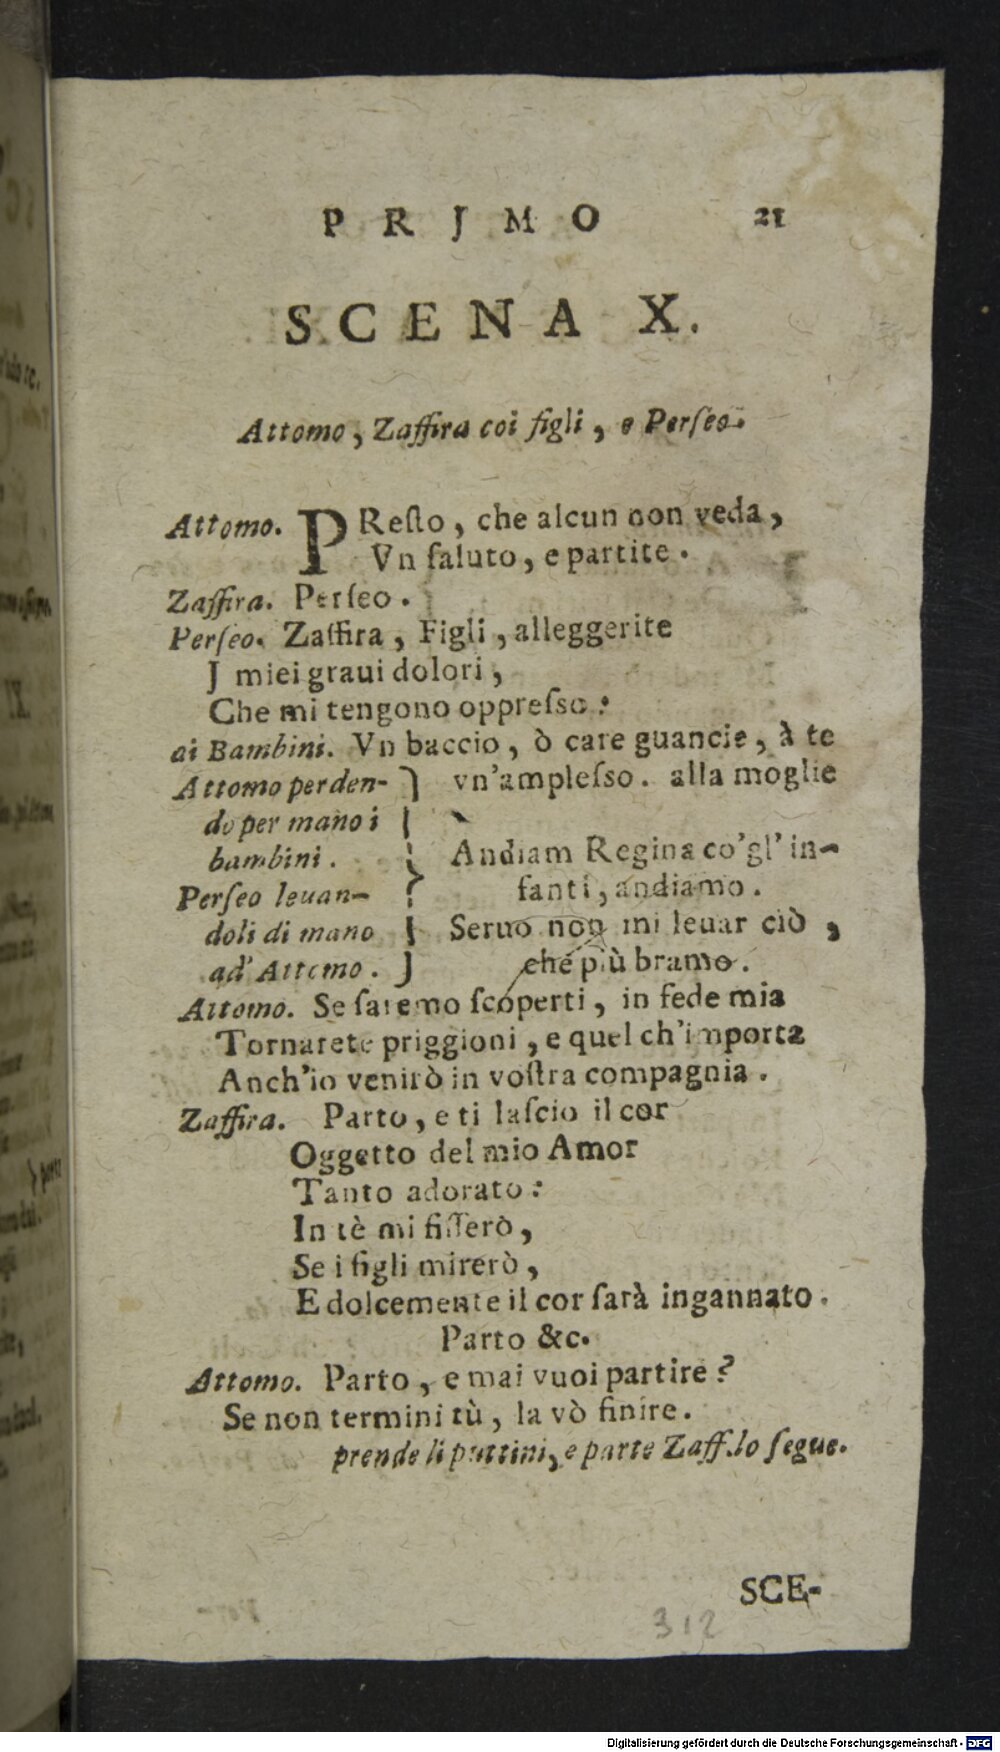 PRJMO 21
SCENA X.
Attomo, Zaffira coi figli, e Perſeo.
Attomo. PReſto, che alcun non veda,
Vn ſaluto, e partite.
Zaffira. Perſeo.
Perſeo. Zaffira, Figli, alleggerite
J miei graui dolori,
Che mi tengono oppreſso:
ai Bambini. Vn baccio, ò care guancie, à te
Attomo perden- } vn'ampleſso. alla moglie
do per mano i
bambini. Andiam Regina co'gl' in-
Perſeo leuan- fanti, andiamo.
doli di mano Seruo non mi leuar ciò,
ad' Attomo. ché più bramo.
Attomo. Se ſaremo ſcoperti, in fede mia
Tornarete priggioni, e quel ch'importa
Anch'io venirò in voſtra compagnia.
Zaffira. Parto, e ti laſcio il cor
Oggetto del mio Amor
Tanto adorato:
In tè mi fiſſerò,
Se i figli mirerò,
E dolcemente il cor ſarà ingannato.
Parto &c.
Attomo. Parto, e mai vuoi partire?
Se non termini tù, la vò finire.
prende li puttini, e parte Zaff.lo ſegue.
SCE-
312
Digitalisierung gefördert durch die Deutsche Forschungsgemeinschaft - DFG